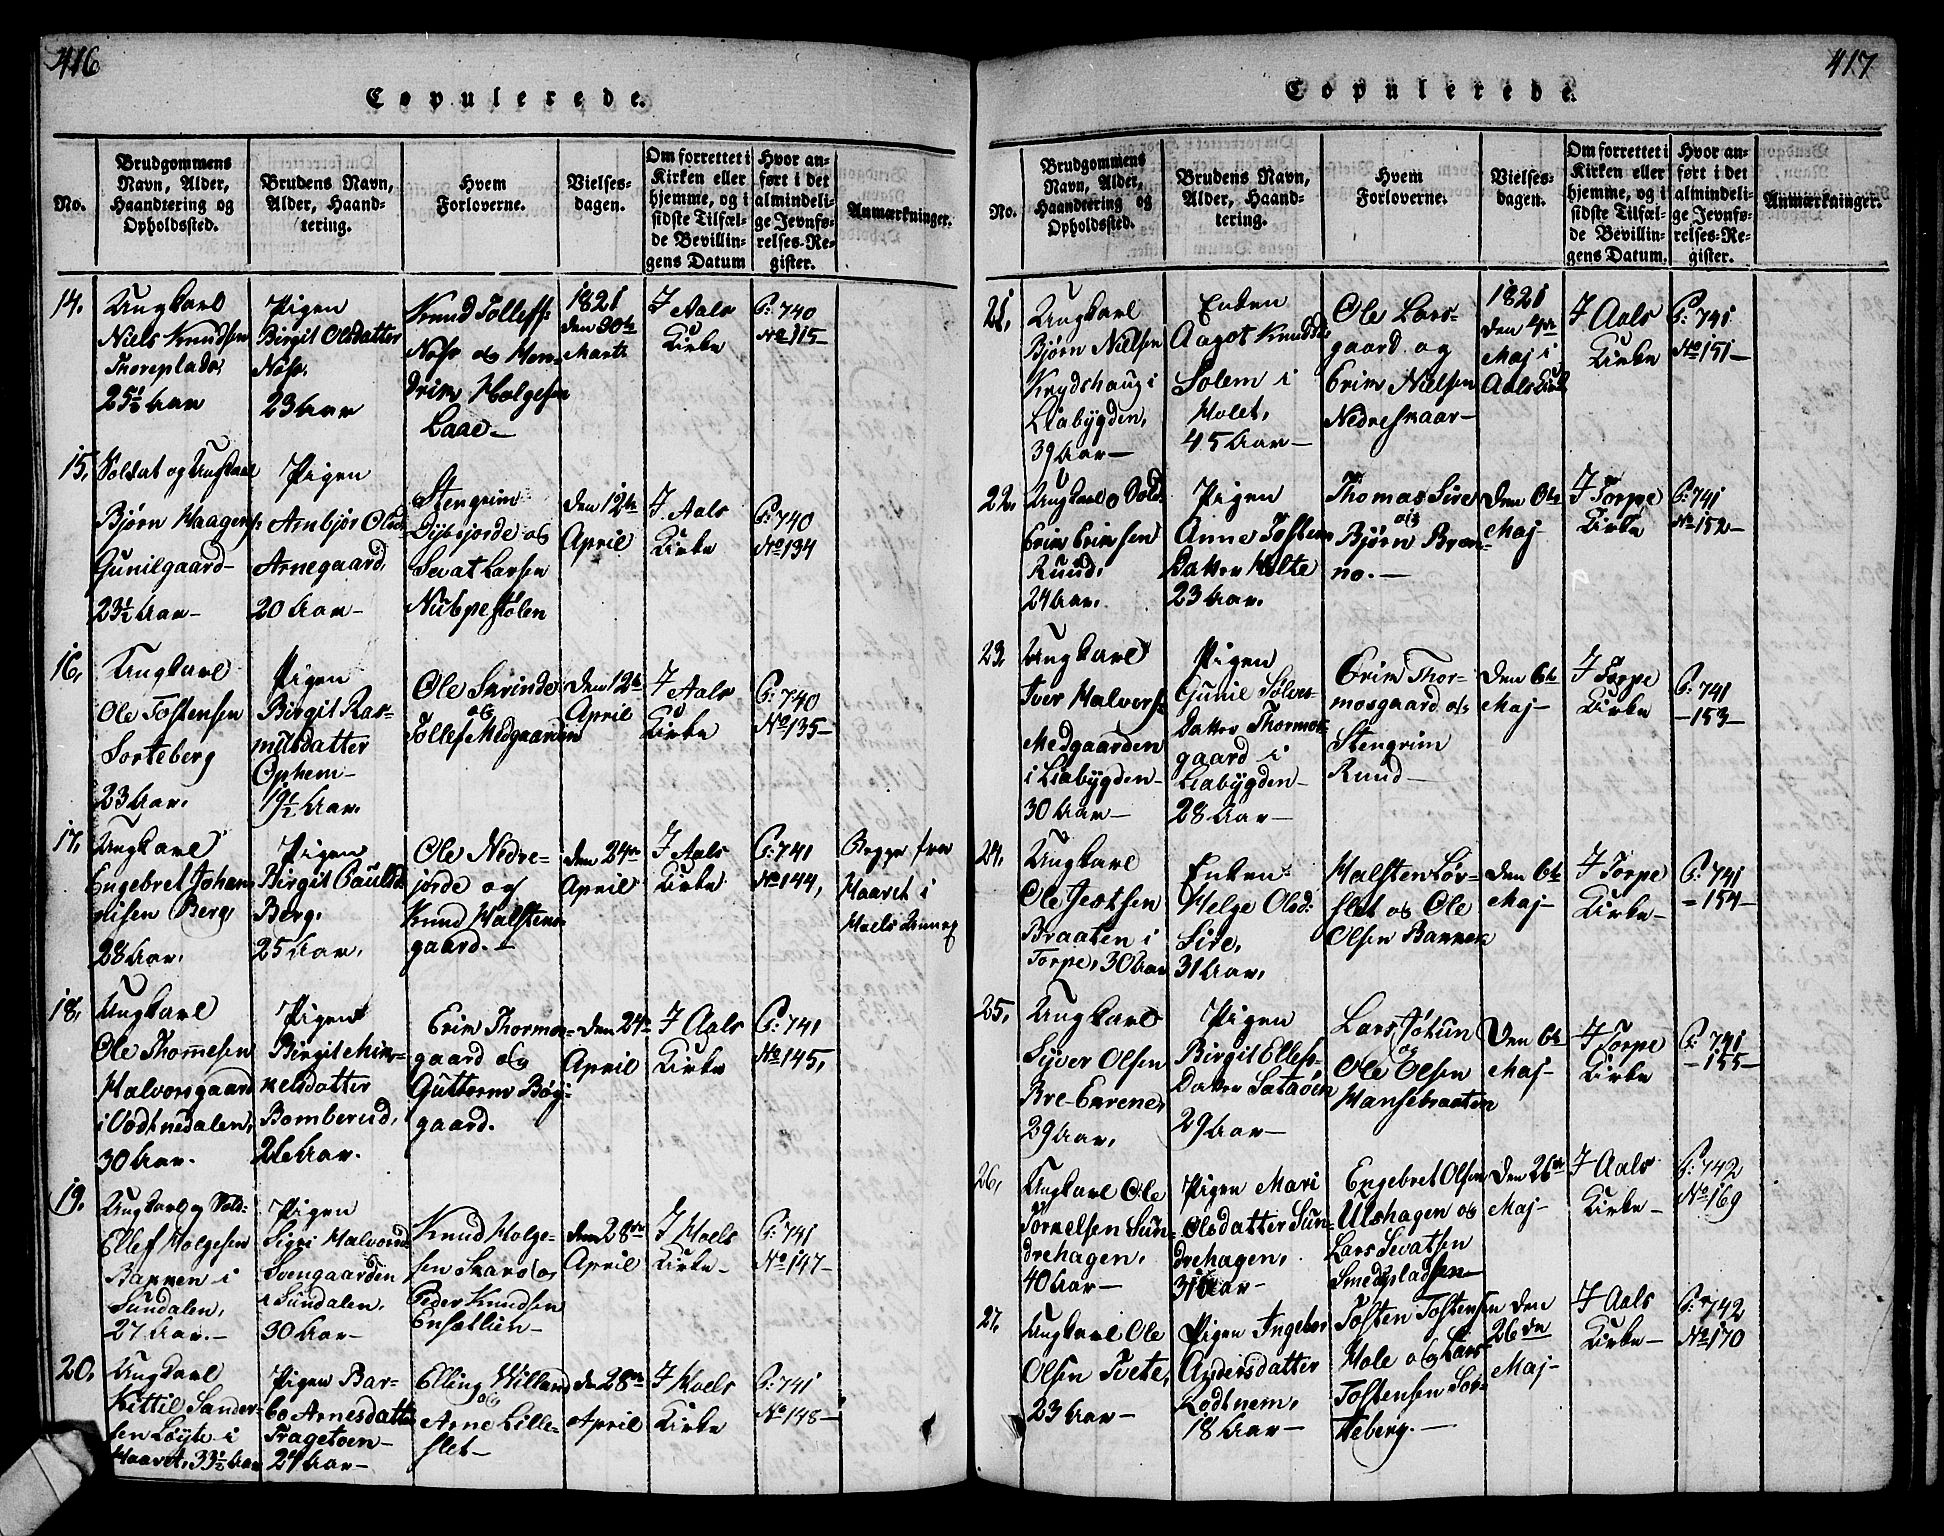 416
Copulerede.
No.
Brudgommens Navn, Alder, Haandtering og Opholdssted.
Brudens Navn, Alder, Haandtering.
Hvem Forloverne.
Vielsesdagen.
Om forrettet i Kirken eller hjemme, og i sidste Tilfælde Bevillingens Datum
Hvor anført i det almindelige Jevnførelses-Register.
Anmærkninger.
14.
Ungkarl
Niels Knudsen
Thoreplads,
25½ Aar
Pigen
Birgit Olsdatter
Noss,
23 Aar
Knud Tollefs:
Noss og Hen-
drik Holgesen
Laae-
1821
den 30te
Marti
I Aals
Kirke
P: 740
No 115-
15.
Soldat og Ungkarl
Bjørn Haagens:
Gunilgaard-
23½ Aar-
Pigen
Arnbjør Olsd:
Arnegaard,
20 Aar-
Stengrim
Dysjorde og
Sevat Larsen
Nubpestølen
den 12te
April
I Aals
Kirke
P: 740
No 134
16.
Ungkarl
Ole Tostensen
Sorteberg
23 Aar.
Pigen
Birgit Ras-
musdatter
Ophem-
19½ Aar.
Ole Skrinde
og
Tollef Medgaarden
den 12te
April
I Aals
Kirke
P: 740
No 135-
17.
Ungkarl
Engebret Johan-
nisen Berg,
28 Aar.
Pigen
Birgit Paulsd:
Berg,
25 Aar.
Ole Nedre-
jorde og
Knud Halstens-
gaard.-
den 24de
April
I Aals
Kirke
P: 741
No 144,
Begge fra
Haavet i
Hoels Annex
18.
Ungkarl
Ole Thommesen
Halvorsgaard
i Vodtnedalen,
30 Aar.
Pigen
Birgit Mik-
kelsdatter
Bomberud,
26 Aar.
Erik Thormos-
gaard og
Guttorm Bøy-
gaard.
den 24de
April
I Aals
Kirke
P: 741
No 145,
19.
Ungkarl og Sold-
Ellef Holgesen
Bakken i
Sundalen,
27 Aar.-
Pigen
Sigri Halvorsd:
Svengaarden
i Sundalen,
30 Aar-
Knud Holge-
sen Skaro og
Peder Knudsen
den 28de
April
I Hoels
Kirke-
P: 741
No 147-
20.
Ungkarl
Kittil Sander-
sen Løyte i
Haavet, 33½ Aar
Pigen Bar-
bo Arnesdatter
Tragetoen-
24 Aar-
Elling Villand
og
Arne Lille-
slet-
d: 28de
April
I Hoels
Kirke
P: 741
No 148-
417
Copulerede.
No.
Brudgommens Navn, Alder, Haandtering og Opholdssted.
Brudens Navn, Alder, Haandtering.
Hvem Forloverne.
Vielsesdagen.
Om forrettet i Kirken eller hjemme, og i sidste Tilfælde Bevillingens Datum.
Hvor anført i det almindelige Jevnførelses-Register.
Anmærkninger.
21.
Ungkarl
Bjørn Nielsen
Krydshaug i
Liabygden,
39 Aar-
Enken
Aagot Knudsd:
Solem i
Holet,
45 Aar-
Ole Lars-
gaard og
Erik Nielsen
Nedreskaar-
1821
den 4de
Maj i
Aals Kirke
I Aals
Kirke
P: 741
No 151-
22.
Ungkarl og Sold:
Erik Eriksen
Ruud,
24 Aar.
Pigen
Anne Tosten-
Datter Holte
23 Aar.
Thomas Sire
og
Bjørn Brek-
ko.-
den 6te
Maj-
I Torpe
Kirke
P: 741
No 152-
23.
Ungkarl
Iver Halvors:
Medgaarden
i Liabygden-
30 Aar-
Pigen
Gunil Sølves-
Datter Thormos-
gaard i
Liabygden-
28 Aar-
Erik Thor-
mosgaard og
Stengrim
Ruud-
den 6te
Maj-
I Torpe
Kirke
P: 741
-153-
24.
Ungkarl
Ole Jostsen
Braaten i
Torpe, 30 Aar
Enken
Helge Olsd:
Sire,
31 Aar.
Halsten Lør-
slet og Ole
Olsen Bakken
den 6te
Maj-
I Torpe
Kirke-
P: 741
-154-
25.
Ungkarl
Syver Olsen
Bre-Eukene,
29 Aar,
Pigen
Birgit Ellefs-
Datter Sataøen
29 Aar-
Lars Jøkun
og
Ole Olsen
Hansebraaten
Den 6te
Maj-
I Torpe
Kirke
P: 741
-155-
26.
Ungkarl Ole
Torkelsen Sun-
drehagen,
40 Aar-
Pigen Mari
Olsdatter Sun-
drehagen,
31 Aar-
Engebret Olsen
Ulshagen og
Lars Sevatsen
Smedpladsen-
Den 26de
Maj-
I Aals
Kirke-
P: 742
No 169
27.
Ungkarl Ole
Olsen Tvete,
23 Aar-
Pigen Ingebor
Andersdatter
Rodtnem,
18 Aar-
Tosten Tostensen
Hole og Lars
Tostensen Sor-
teberg.-
den
26de
Maj-
I Aals
Kirke-
P: 742
No 170